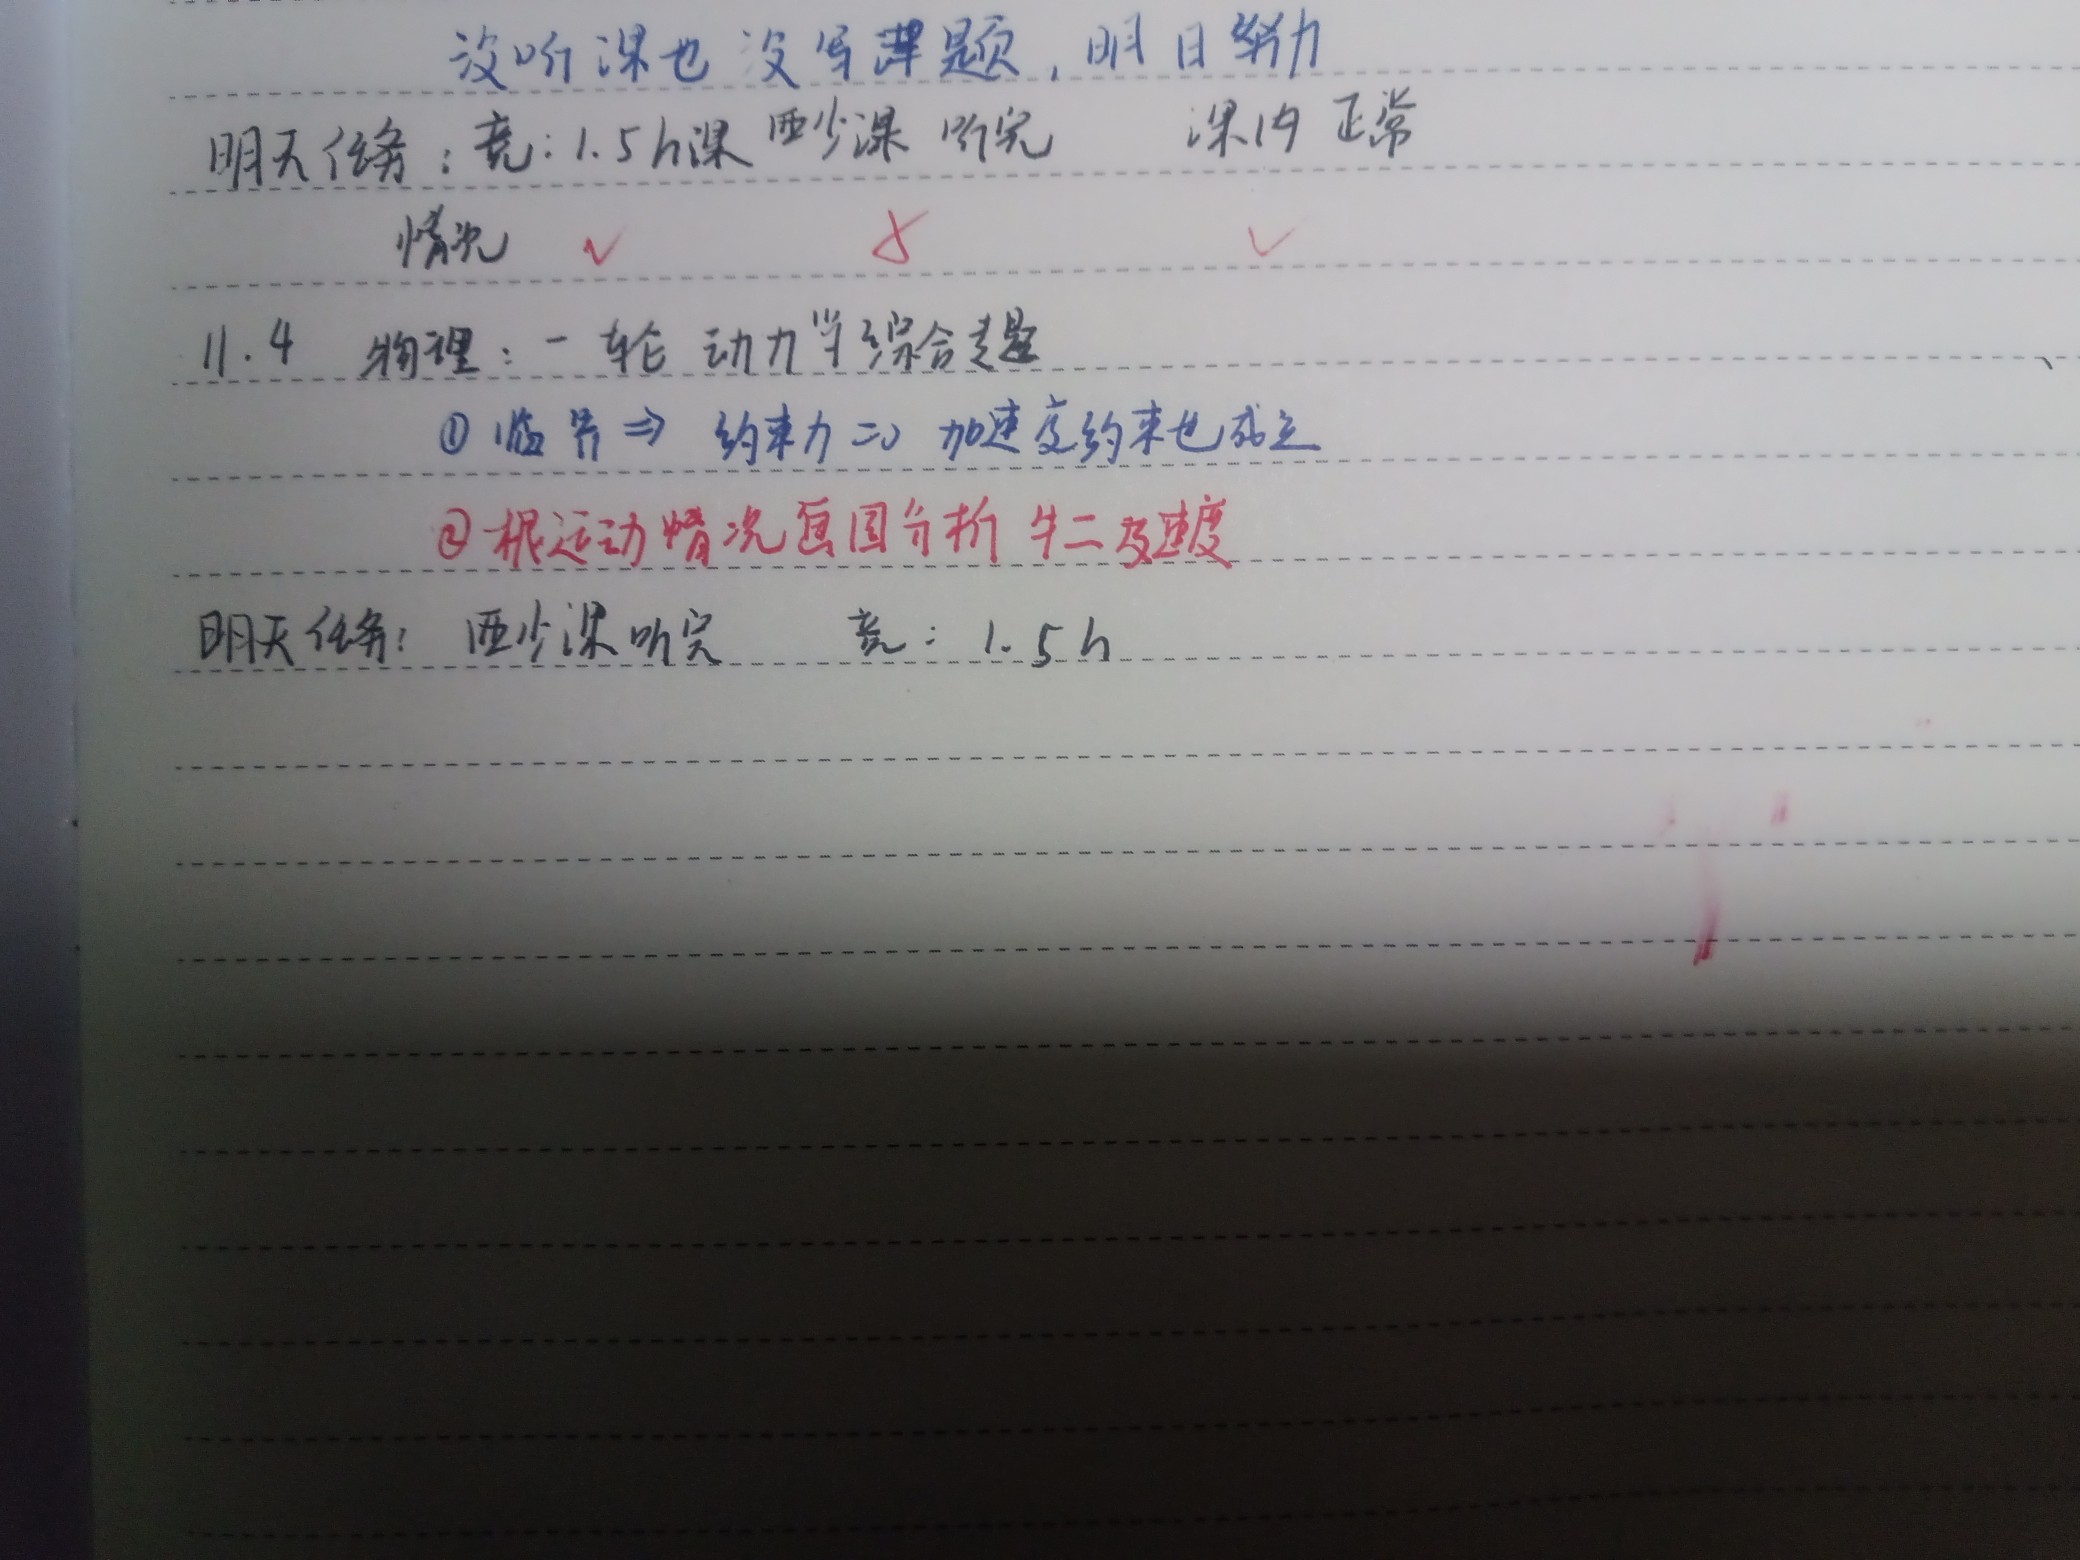 没听课也没写课题，明日努力
明天任务：竞：1.5h课 亚少课 听完 课内 正常
情况 ✓ ✗ ✓
11.4 物理：一轮 动力学综合专题
① 临界⇒ 约束力=0 加速度约束也成立
②根运动情况画图分析 牛二及速度
明天任务：亚少课听完 竞：1.5h